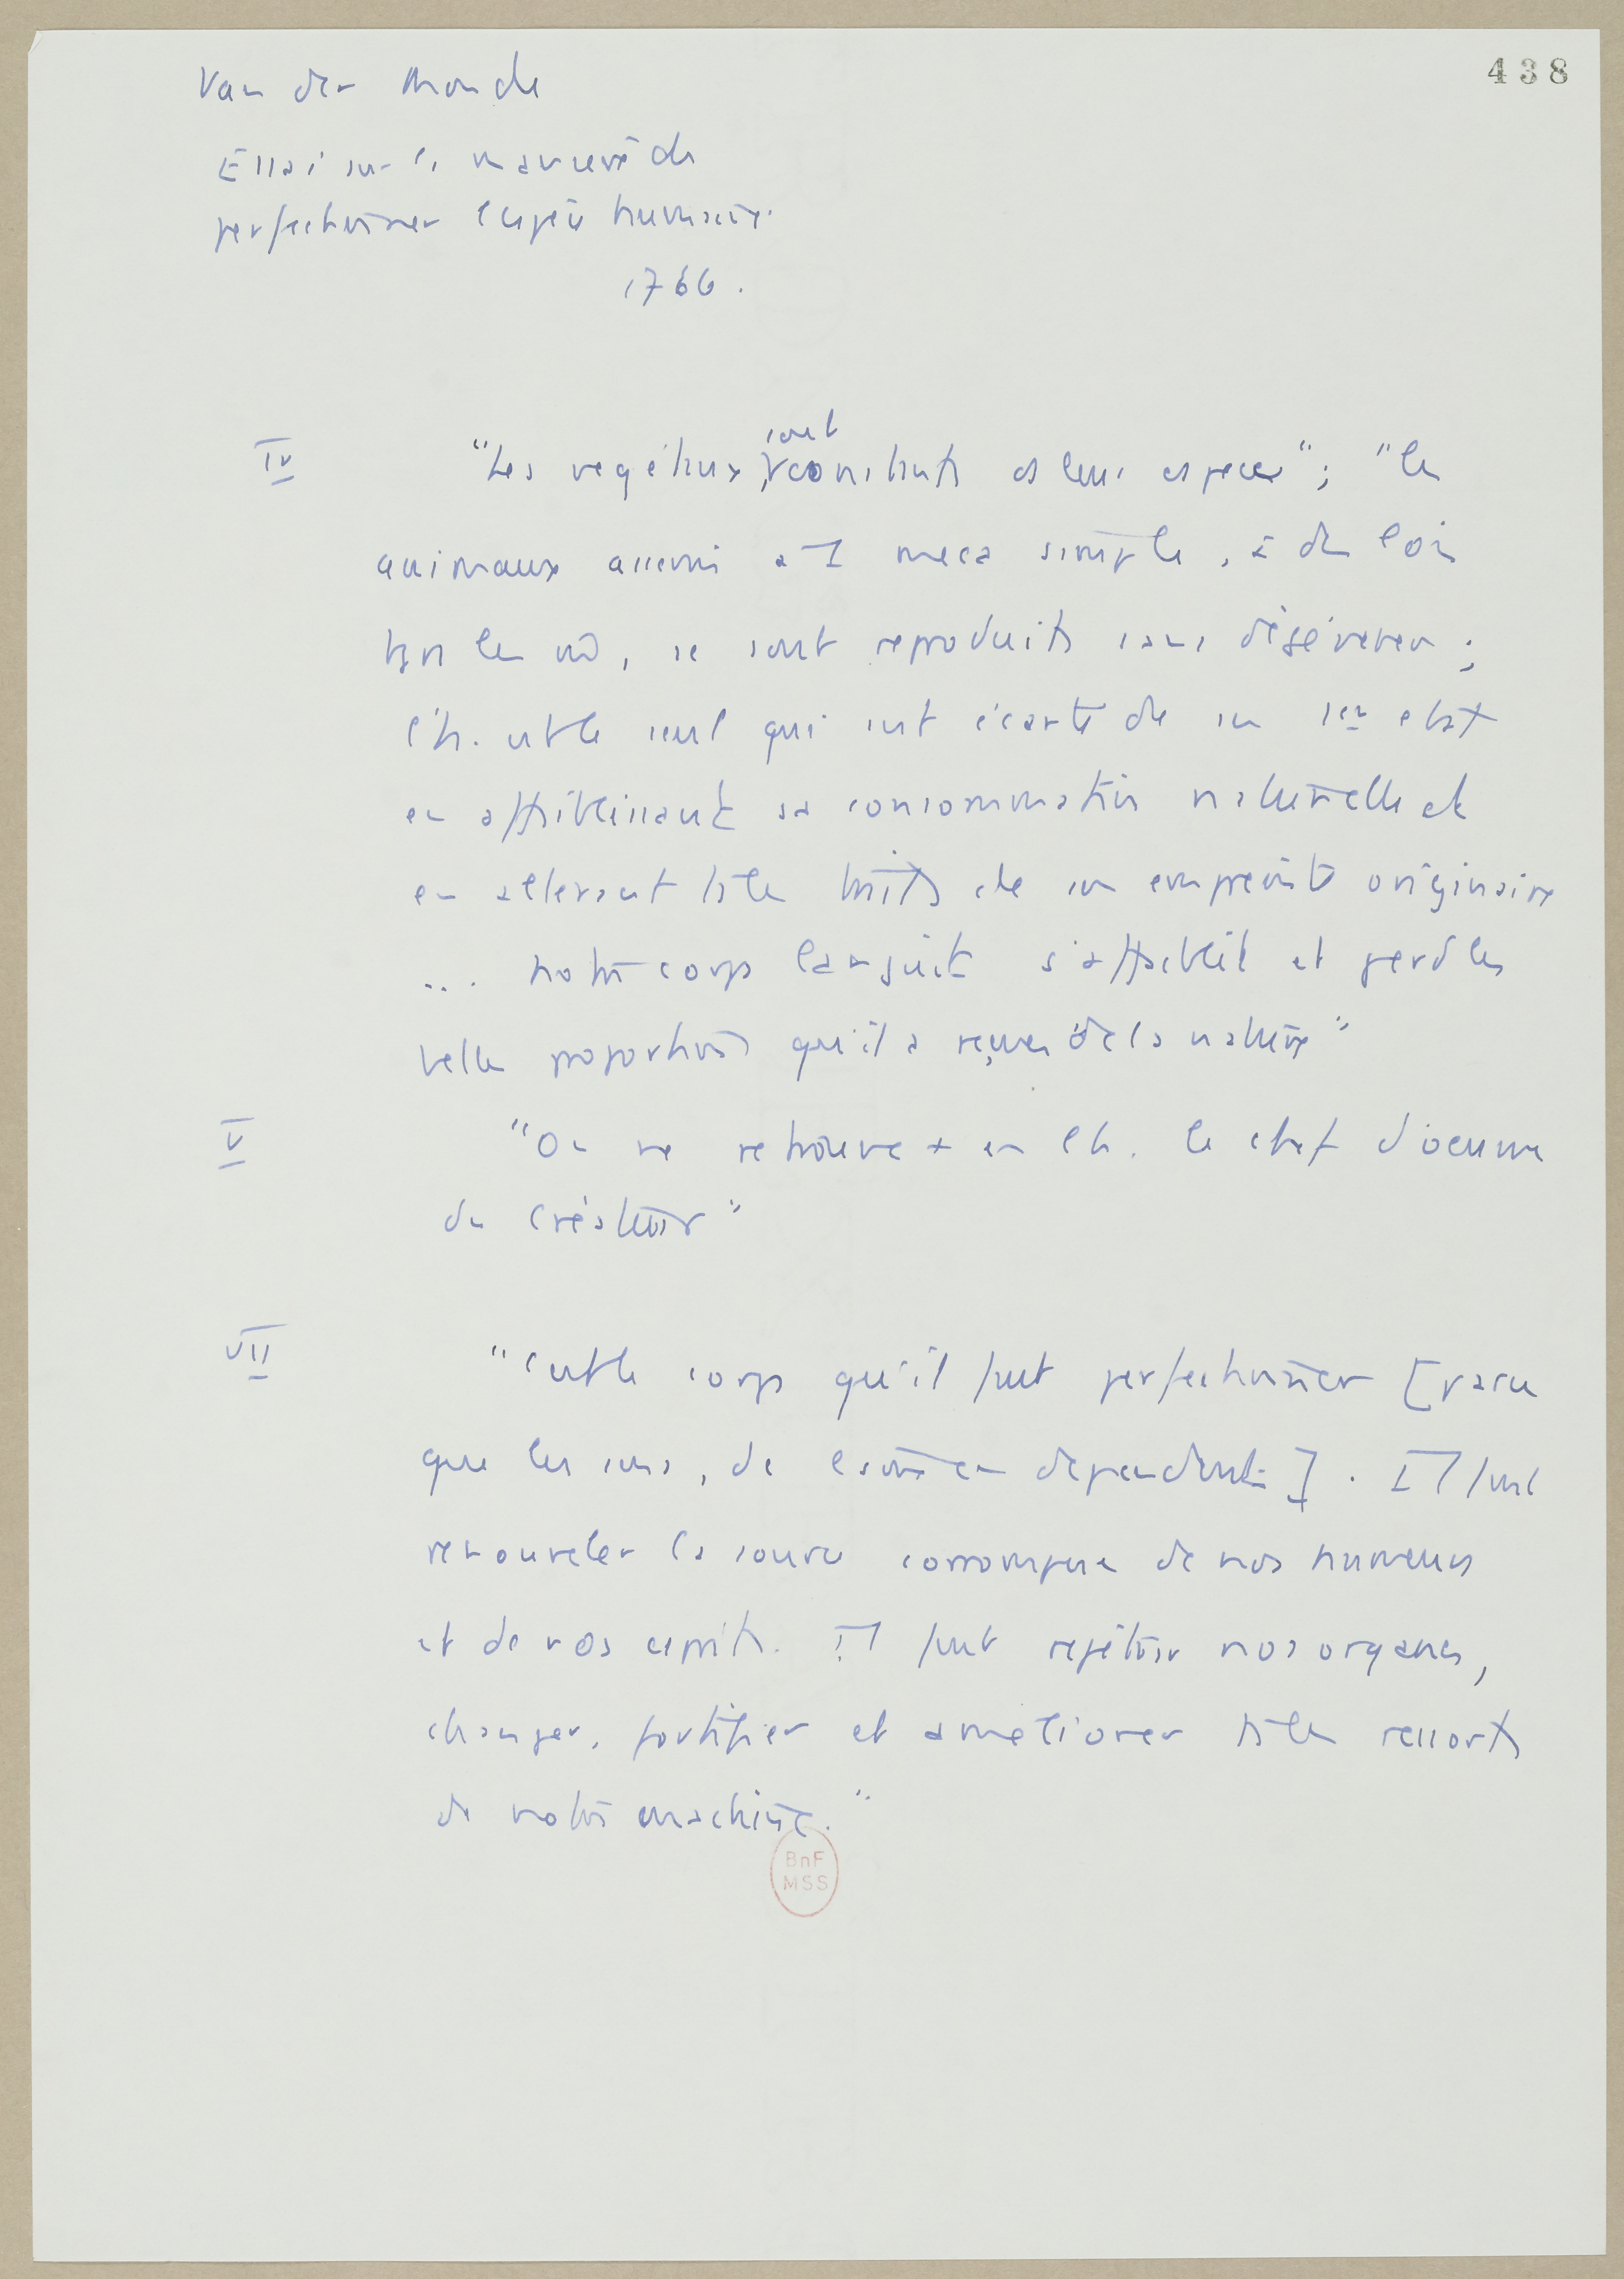 438
Van der Monde
Essai sur la manière de
perfectionner l'espèce humaine.
1766.
IV "Les végétaux sont constants ds leurs espèces"; "les
animaux asservis à I méca simple, à des lois
les , se sont reproduits sans dégénérer ;
l'h. est le seul qui s'est écarté de son 1er état
en affaiblissant sa consommation naturelle et
en altérant ts les traits de son empreinte originaire
... notre corps languit s'affaiblit et perd les
belles proportions qu'il a reçues de la nature"
V "On ne retrouve + en l'h. le chef d'oeuvre
du Créateur"
VII "C'est le corps qu'il faut perfectionner [parce
que les sens, de l'âme en dépendent]. Il faut
renouveler la source corrompue de nos humeurs
et de nos esprits. Il faut repétrir nos organes,
changer, fortifier et améliorer ts les ressorts
de notre machine."
BnF
MSS